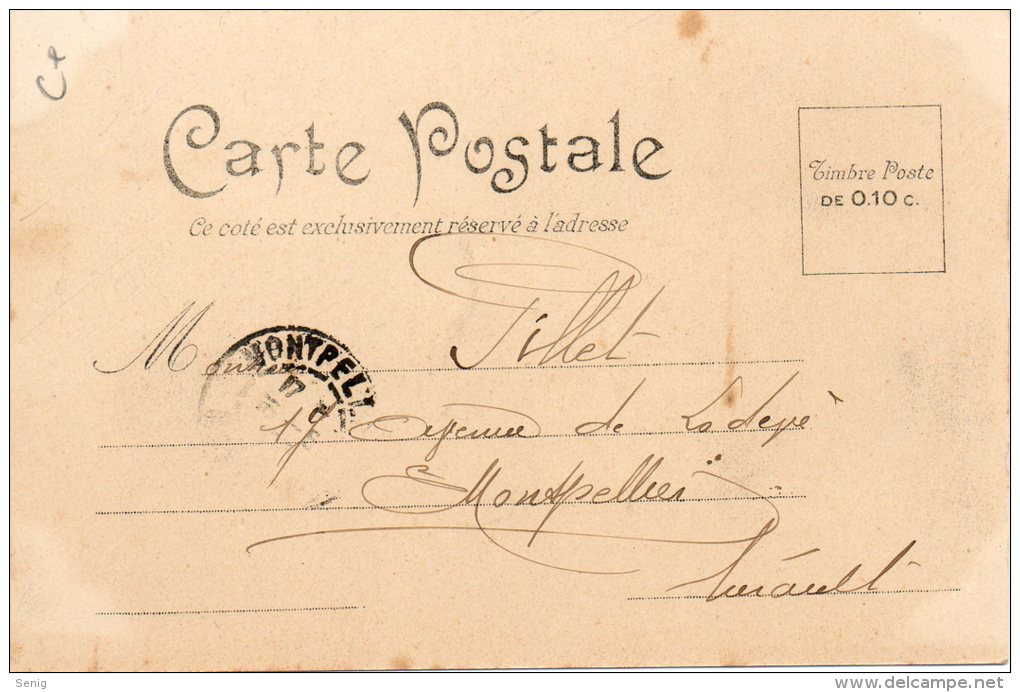 Carte Postale
Ce coté est exclusivement réservé à l'adresse
Timbre Poste
DE 0.10 c.
MONTPEL
17
M Pillet
19 Avenue de Lodève
Montpellier
Hérault
Senig
delcampe.net